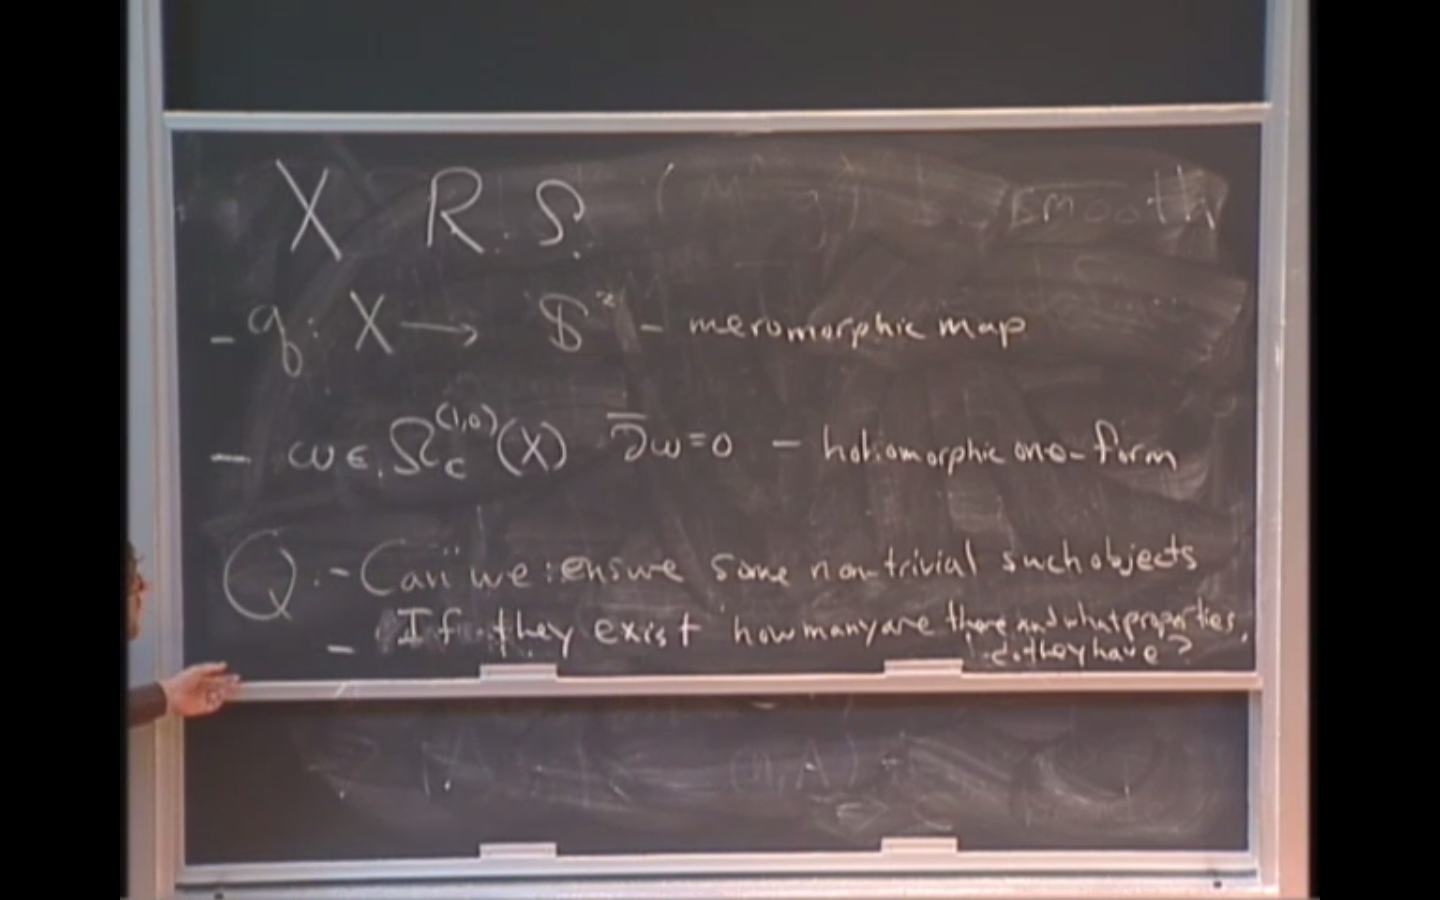 X R.S.
smooth
- g: X → S² - meromorphic map
- ω ∈ Ω_C^(1,0)(X) ∂̄ω=0 - holiomorphic one-form
Q. - Can we ensure some non-trivial such objects
- If they exist how many are there and what properties
do they have?